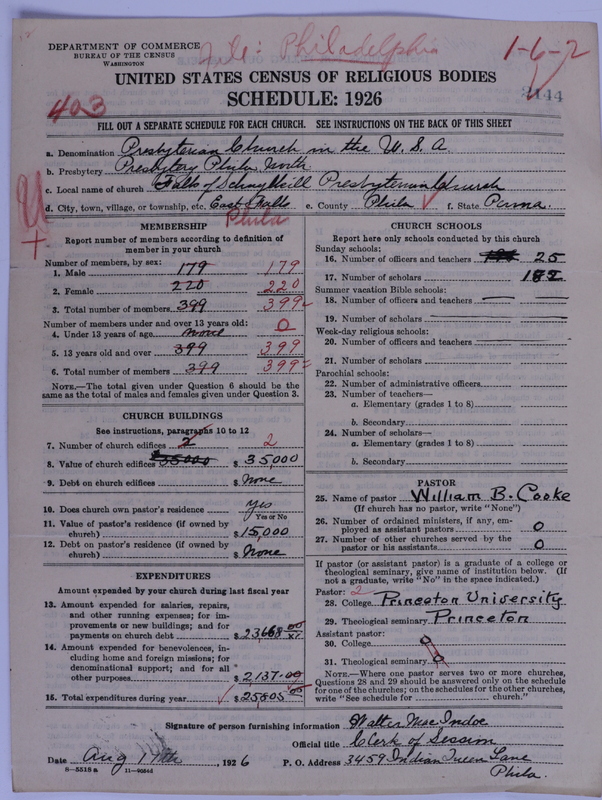 DEPARTMENT OF COMMERCE
BUREAU OF THE CENSUS
WASHINGTON
File: Philadelphia
1-6-2
2144
403
UNITED STATES CENSUS OF RELIGIOUS BODIES
SCHEDULE: 1926
FILL OUT A SEPARATE SCHEDULE FOR EACH CHURCH. SEE INSTRUCTIONS ON THE BACK OF THIS SHEET
a. Denomination Presbyterian Church in the U.S.A.
b. Presbytery Presbytery Phila. North
c. Local name of church Falls of Schuylkill Presbyterian Church
d. City, town, village, or township, etc. East Falls e. County Phila f. State Penna.
Phila
U
+
MEMBERSHIP
Report number of members according to definition of
member in your church
Number of members, by sex:
1. Male 179 179
2. Female 220 220
3. Total number of members 399 399
Number of members under and over 13 years old:
4. Under 13 years of age none 0
5. 13 years old and over 399 399
6. Total number of members 399 399
NOTE.—The total given under Question 6 should be the
same as the total of males and females given under Question 3.
CHURCH BUILDINGS
See instructions, paragraphs 10 to 12
7. Number of church edifices 2 2
8. Value of church edifices 35000 $ 35,000
9. Debt on church edifices $ None
10. Does church own pastor's residence yes
Yes or No
11. Value of pastor's residence (if owned by
church) $ 15,000
12. Debt on pastor's residence (if owned by
church) $ None
EXPENDITURES
Amount expended by your church during last fiscal year
13. Amount expended for salaries, repairs,
and other running expenses; for im-
provements or new buildings; and for
payments on church debt $ 23668
14. Amount expended for benevolences, in-
cluding home and foreign missions; for
denominational support; and for all
other purposes $ 2137.00
15. Total expenditures during year $ 25805
CHURCH SCHOOLS
Report here only schools conducted by this church
Sunday schools:
16. Number of officers and teachers 25
17. Number of scholars 182
Summer vacation Bible schools:
18. Number of officers and teachers
19. Number of scholars
Week-day religious schools:
20. Number of officers and teachers
21. Number of scholars
Parochial schools:
22. Number of administrative officers
23. Number of teachers—
a. Elementary (grades 1 to 8)
b. Secondary
24. Number of scholars—
a. Elementary (grades 1 to 8)
b. Secondary
PASTOR
25. Name of pastor William B. Cooke
(If church has no pastor, write "None")
26. Number of ordained ministers, if any, em-
ployed as assistant pastors 0
27. Number of other churches served by the
pastor or his assistants 0
If pastor (or assistant pastor) is a graduate of a college or
theological seminary, give name of institution below. (If
not a graduate, write "No" in the space indicated.)
Pastor: 2
28. College Princeton University
29. Theological seminary Princeton
Assistant pastor:
30. College 0
31. Theological seminary 0
NOTE.—Where one pastor serves two or more churches,
Questions 28 and 29 should be answered only on the schedule
for one of the churches; on the schedules for the other churches,
write "See schedule for church."
Signature of person furnishing information Walter Mac Indoe
Official title Clerk of Session
Date Aug 19th, 1926 P. O. Address 3459 Indian Queen Lane
Phila.
8—5518a 11—9054d